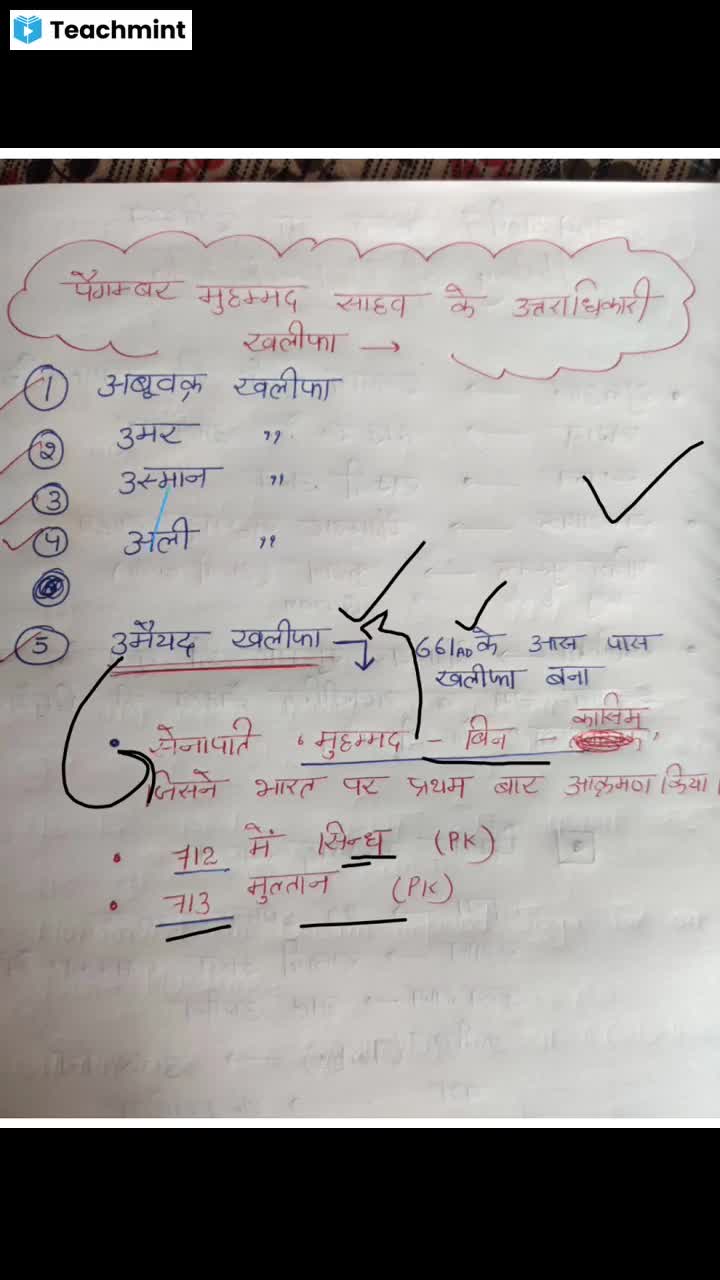 Teachmint
पैगम्बर मुहम्मद साहव के उत्तराधिकारी
खलीफा →
① अबूवक्र खलीफा
② उमर "
③ उस्मान "
④ अली "
⑤ उमैयद खलीफा → 661AD के आस पास
खलीफा बना
• सेनापति 'मुहम्मद - बिन - कासिम'
जिसने भारत पर प्रथम बार आक्रमण किया।
• 712 में सिन्ध (PK)
• 713 मुल्तान (PK)